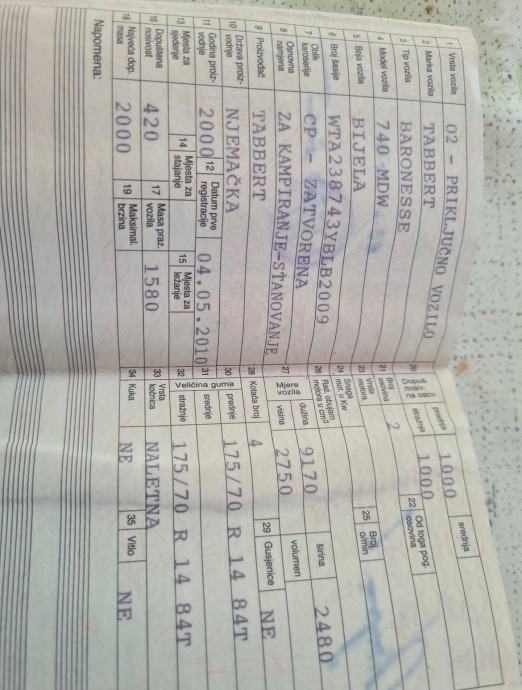 1 Vrsta vozila 02 - PRIKLJUČNO VOZILO
2 Marka vozila TABBERT
3 Tip vozila BARONESSE
4 Model vozila 740 MDW
5 Boja vozila BIJELA
6 Broj šasije WTA238743YBLB2009
7 Oblik karoserije CP - ZATVORENA
8 Osnovna namjena ZA KAMPIRANJE-STANOVANJE
9 Proizvođač TABBERT
10 Država proiz-vodnje NJEMAČKA
11 Godina proiz-vodnje 2000 12 Datum prve registracije 04.05.2010
13 Mjesta za sjedenje 14 Mjesta za stajanje 15 Mjesta za ležanje
16 Dopuštena nosivost 420 17 Masa praz. vozila 1580
18 Najveća dop. masa 2000 19 Maksimal. brzina
Napomena:
20 Dopuš. nosiv. na osov. prednja 1000 srednja
stražnja 1000 22 Od toga pog. osovina
21 Broj osovina 2
23 Vrsta motora 25 Broj o/min
24 Snaga mot. u Kw
26 Rad. obujam motora u cm3
27 Mjere vozila dužina 9170 širina 2480
visina 2750 volumen
28 Kotača broj 4 29 Gusjenice NE
30 Veličina guma prednje 175/70 R 14 84T
31 srednje
32 stražnje 175/70 R 14 84T
33 Vrsta kočnica NALETNA
34 Kuka NE 35 Vitlo NE